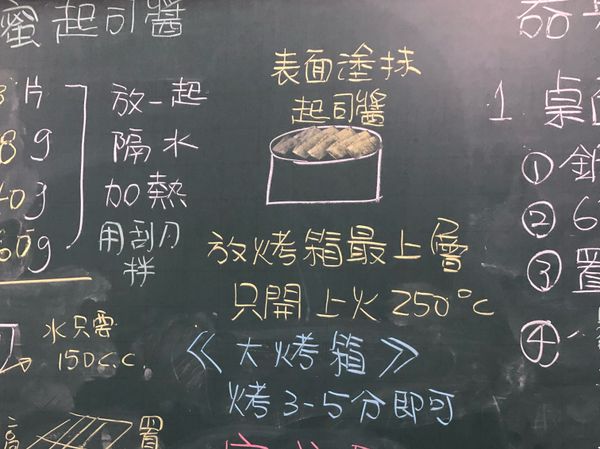 蜜起司醬
片
8g
40g
60g
放一起
隔水
加熱
用刮刀
拌
水只需
150c.c.
置
表面塗抹
起司醬
放烤箱最上層
只開上火250°c
《大烤箱》
烤3-5分即可
1. 桌
①
② 6
③ 置
④